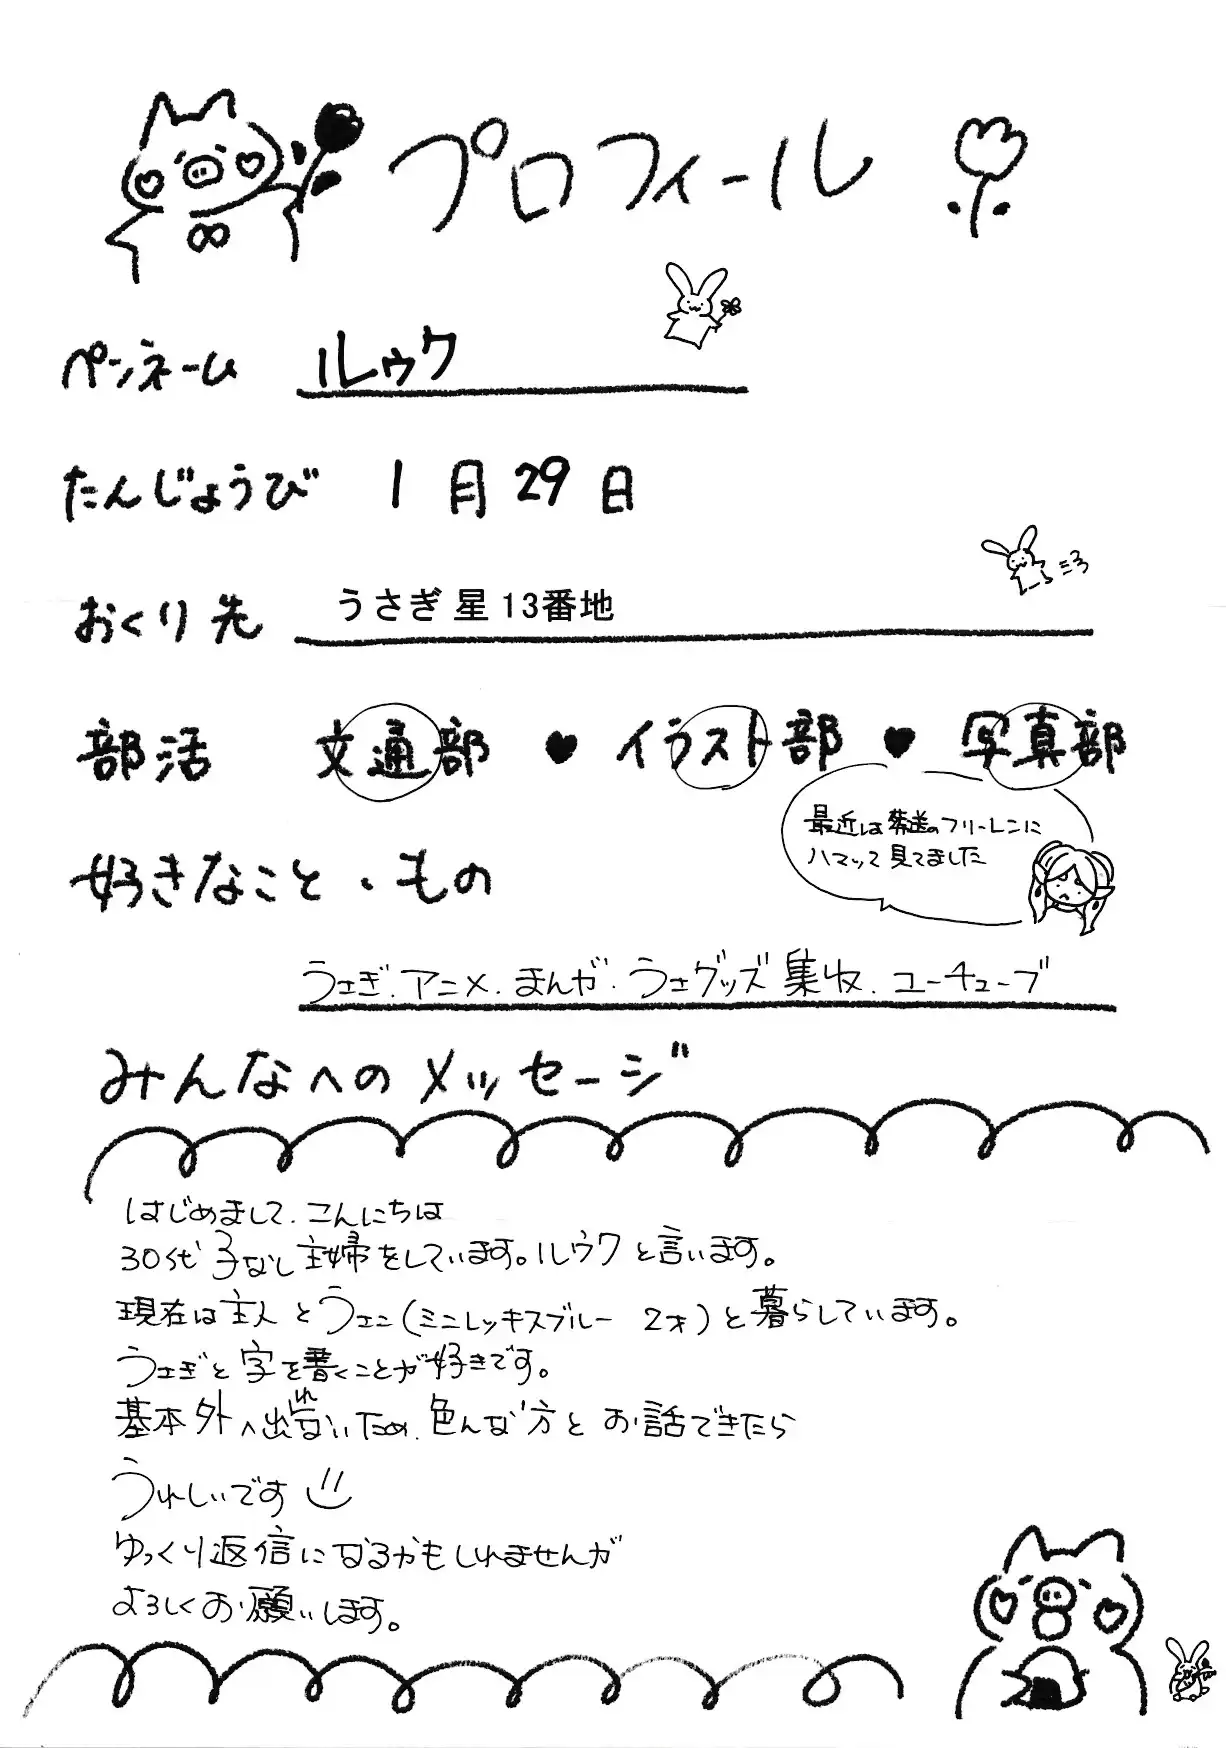 プロフィール
ペンネーム ルゥク
たんじょうび 1月29日
おくり先 うさぎ星13番地
部活 文通部 ♥ イラスト部 ♥ 写真部
最近は葬送のフリーレンに
ハマッて見てました
好きなこと・もの
うさぎ.アニメ.まんが.うさグッズ集収.ユーチューブ
みんなへのメッセージ
はじめまして.こんにちは
30代子なし主婦をしています。ルゥクと言います。
現在は主人とうさこ(ミニレッキスブルー 2才)と暮らしています。
うさぎと字を書くことが好きです。
基本外へ出れないため.色んな方とお話できたら
うれしいです
ゆっくり返信になるかもしれませんが
よろしくお願いします。